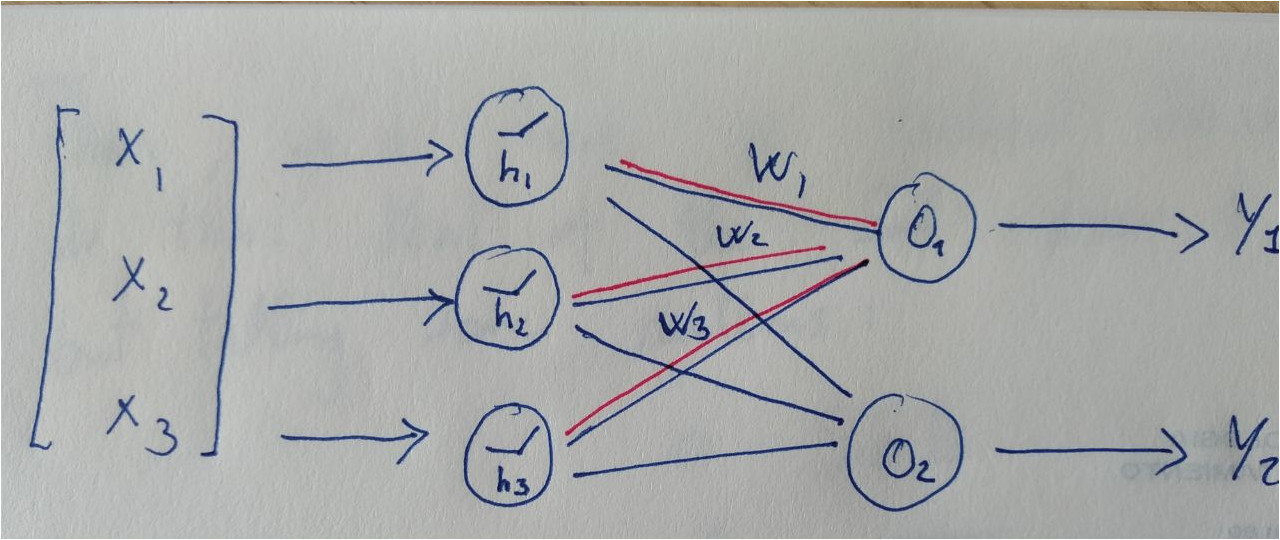 X1
X2
X3
h1
h2
h3
W1
W2
W3
O1
O2
Y1
Y2